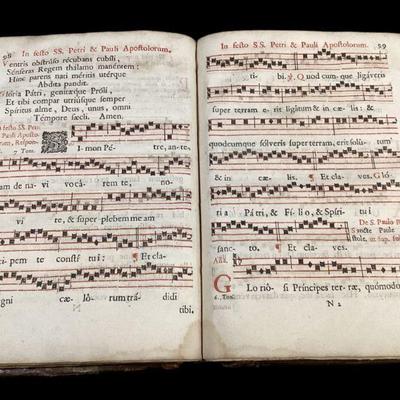 98 In festo SS. Petri & Pauli Apostolorum.
Ventris obstrúso récubans cubíli,
Sénseras Regem thálamo manéntem:
Hinc parens nati méritis utérque
Abdita pandit.
Glória Pátri, genitæque Proli,
Et tibi compar utriúsque semper
Spíritus alme, Deus unus, omni
Témpore sæcli. Amen.
In festo SS. Petri
& Pauli Aposto-
lorum, Respon-
7. Ton.
Simon Pétre, ante-
quam de navi vocárem te, no-
vi te, & super plebem meam
principem te constítui: ¶ Et cla-
regni cælórum trádidi
tibi.
In festo SS. Petri & Pauli Apostolorum. 99
tibi. ℣. Quodcumque ligáveris
super terram erit ligátum & in cælis: &
quodcumque sólveris super terram, erit solútum
& in cælis. ¶ Et claves. Gló-
ria Pátri, & Fílio, & Spirí-
tui
De S. Paulo
Sancte Paule
sancto. ¶ Et claves.
Glorió si Príncipes terræ, quómodo
N 2